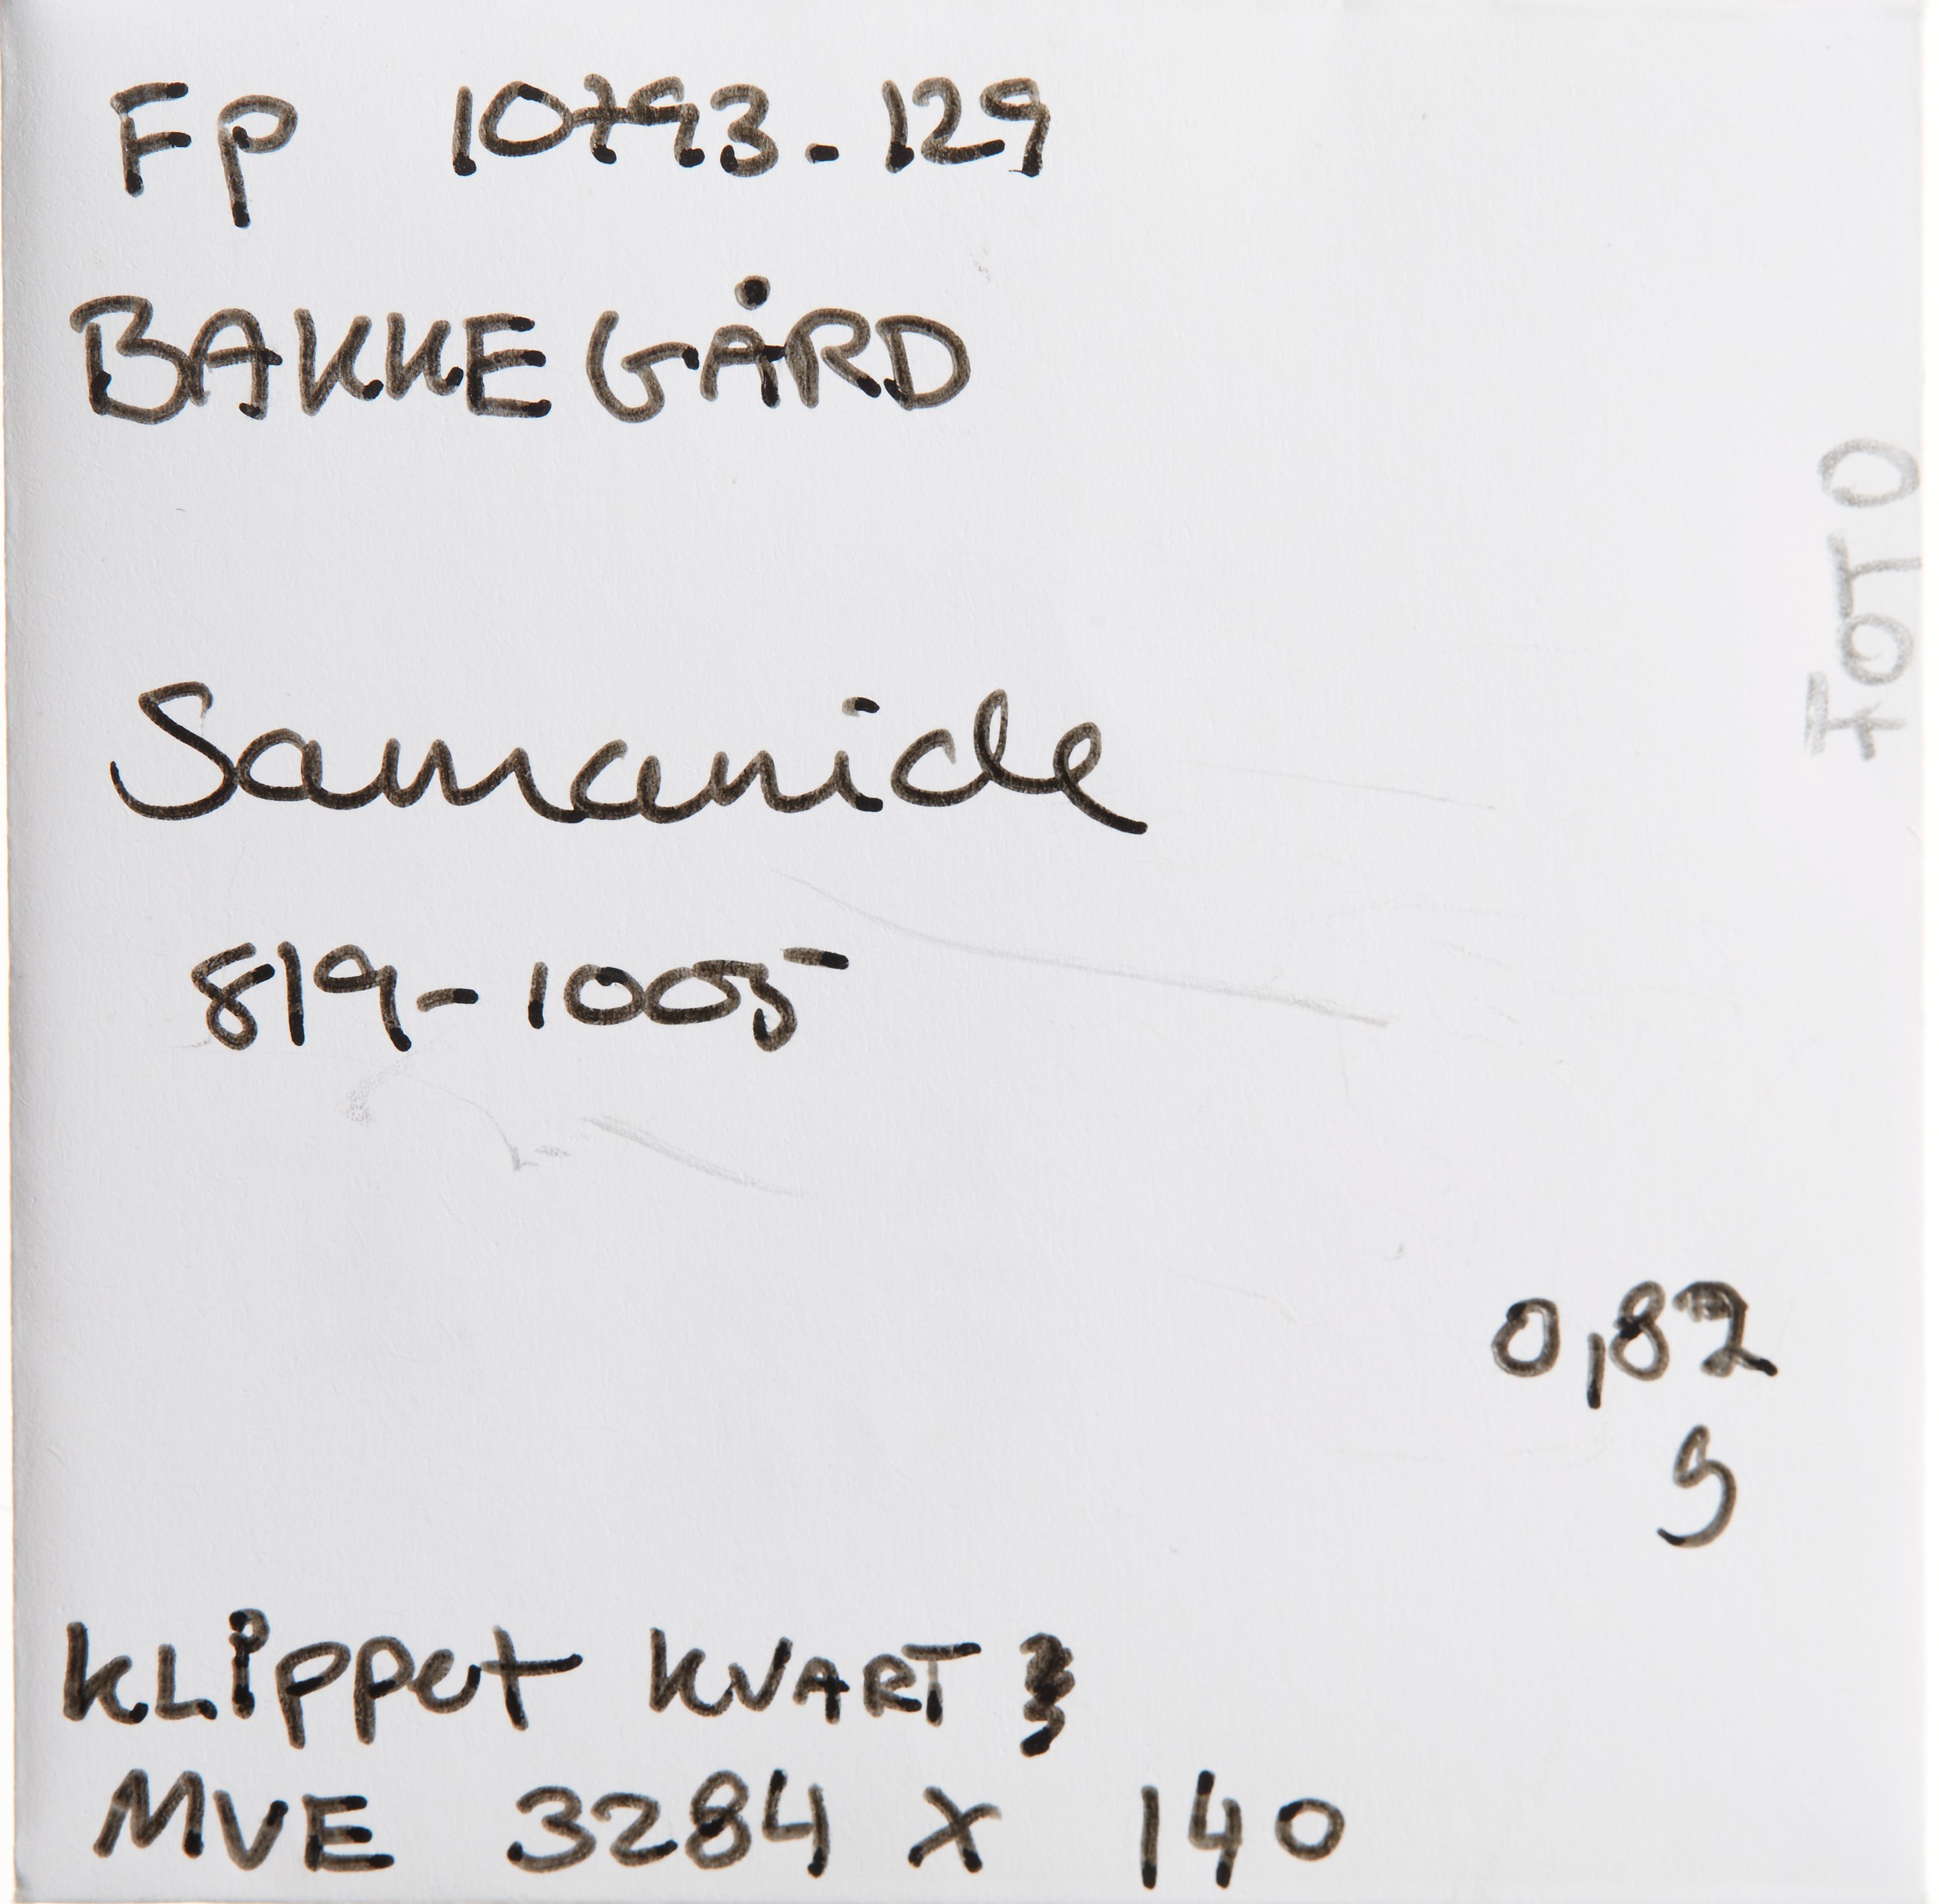 Fp 10793.129
BAKKEGÅRD
FOTO
Samanide
819-1005
0,82
g
KLippet KVART
MVE 3284 X 140